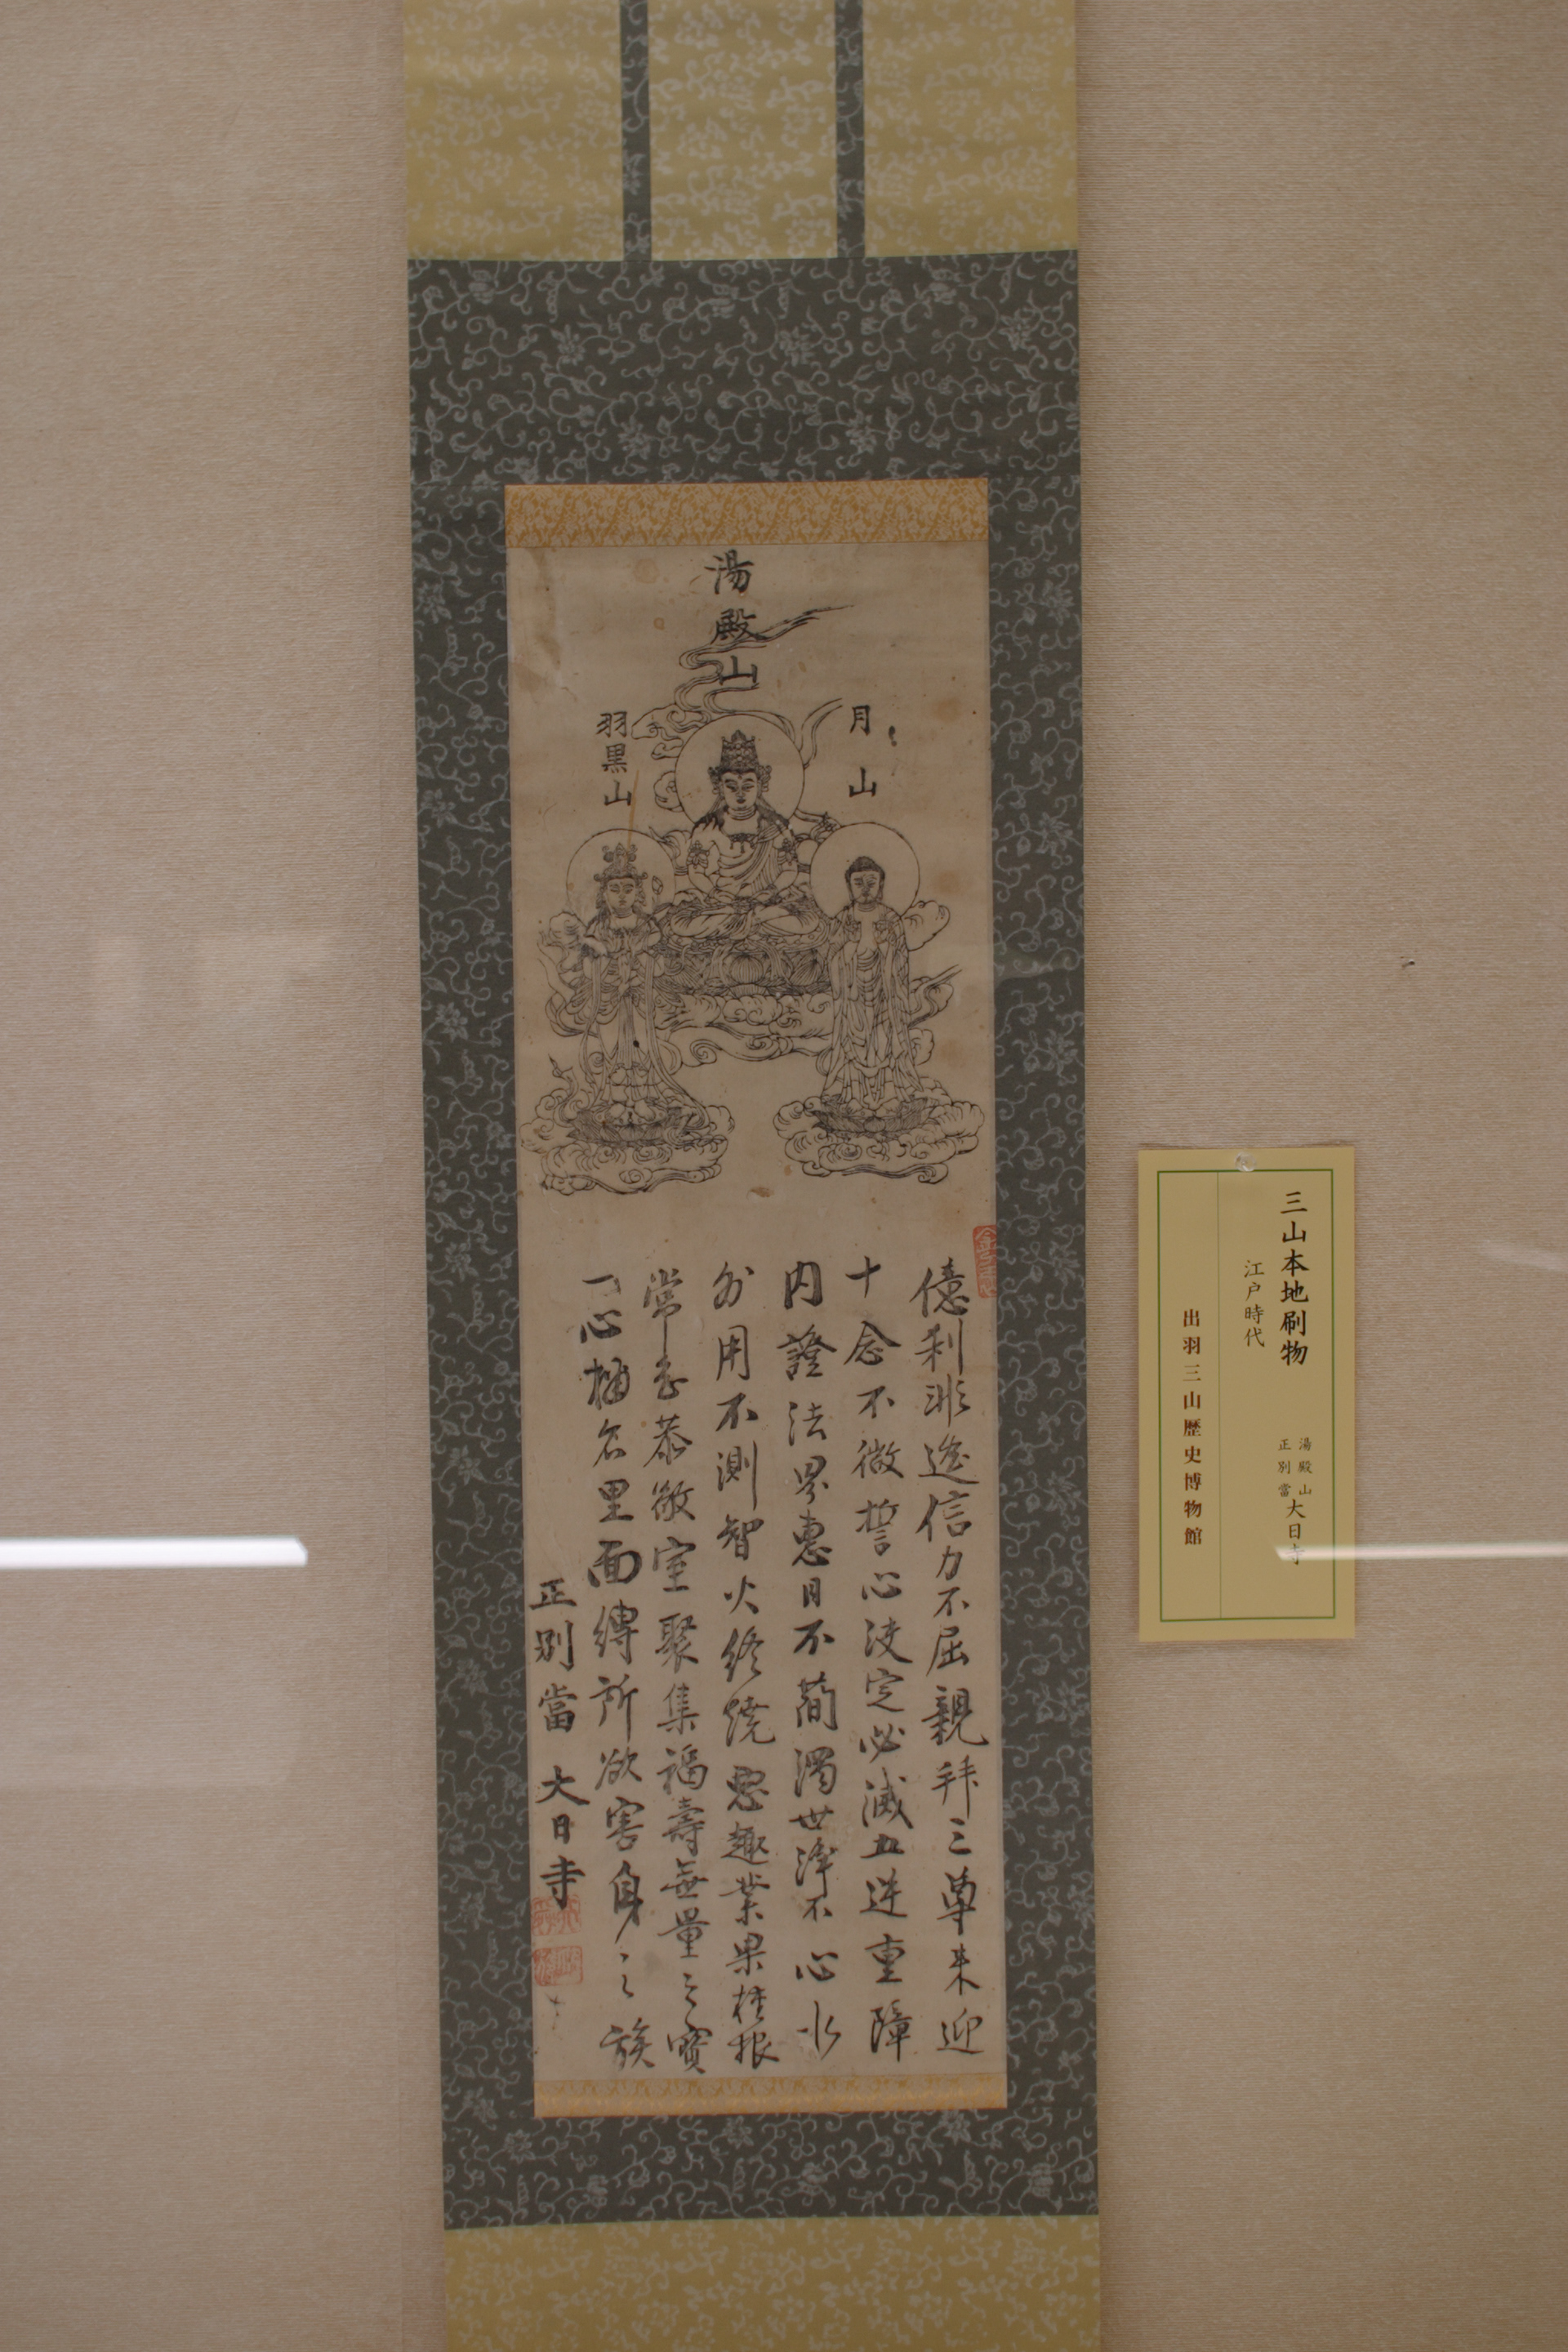 湯殿山
月山
羽黒山
億刹非遙信力不屈親拜三尊来迎
十念不微誓心决定必滅五逆重障
内證法界惠日不蕳濁世浄不心水
外用不測智火終燒悪趣業果枝根
常香恭敬室聚集福壽無量之寶
一心稱名里面縛所欲害身之族
正別當 大日寺
三山本地刷物
湯殿山
正別當
大日寺
江戸時代
出羽三山歴史博物館